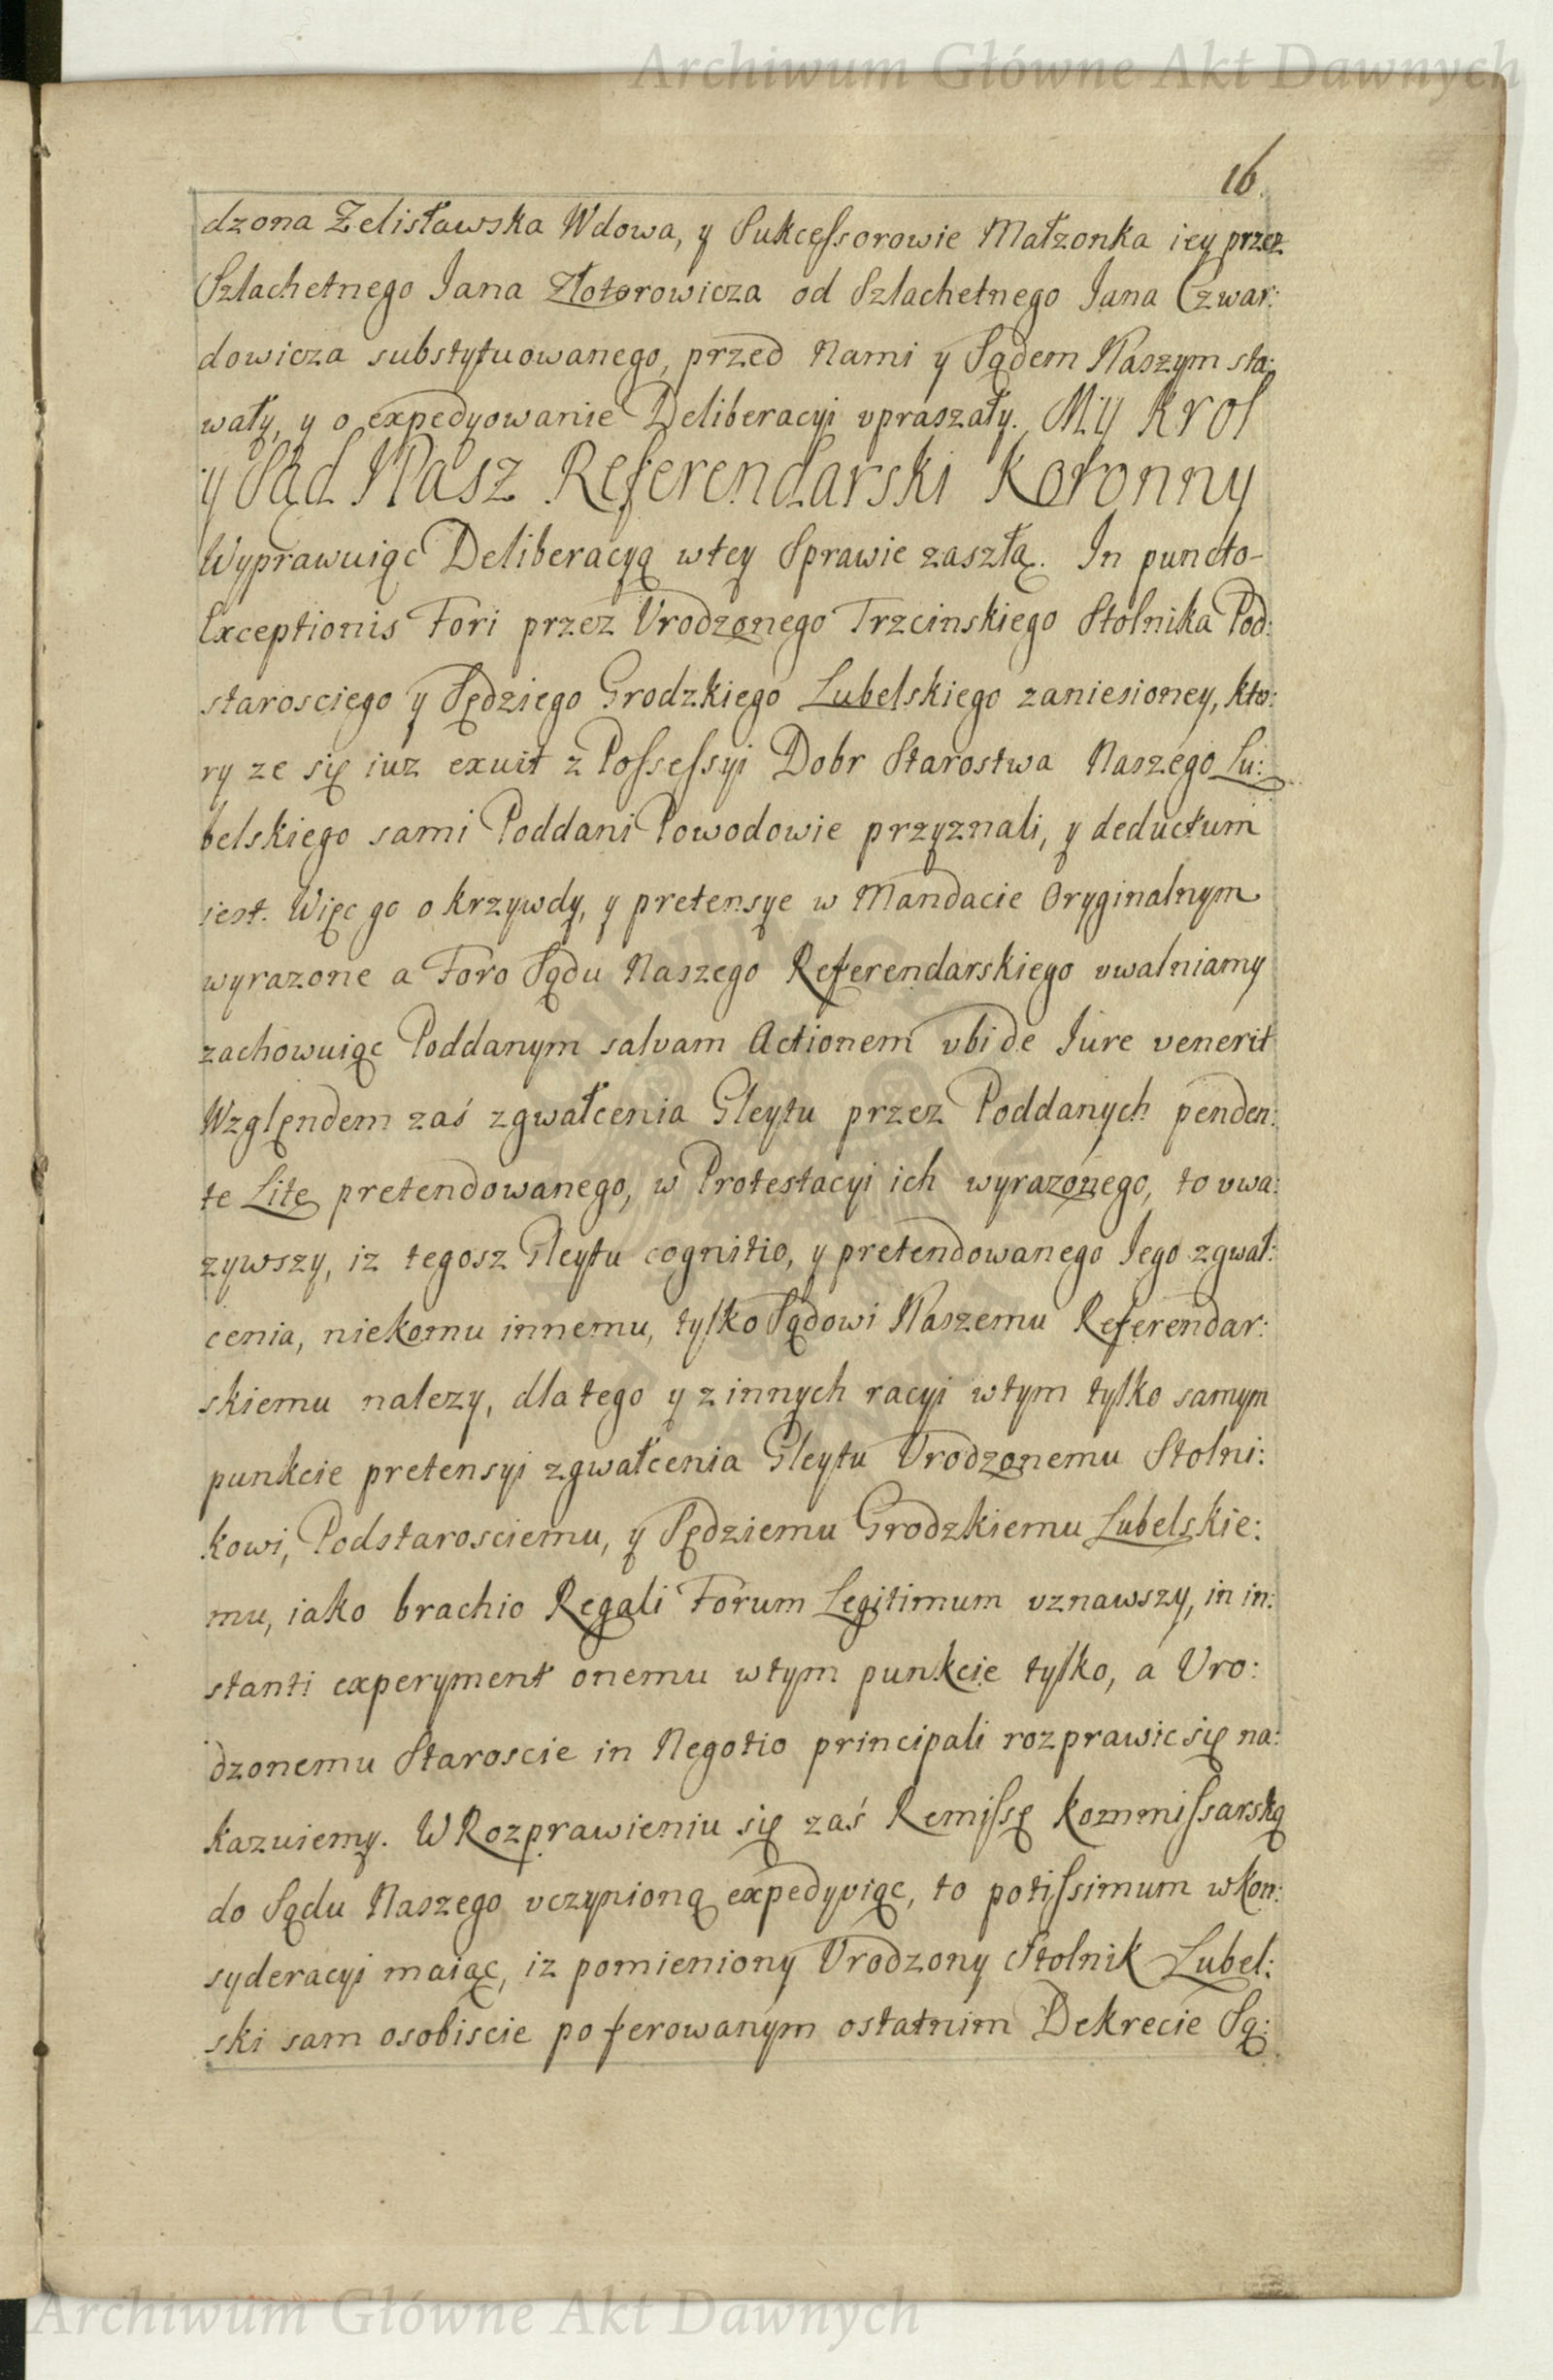 Archiwum Główne Akt Dawnych
16.
dzona Zelisławska Wdowa, y Sukcessorowie Małzonka iey przez
Szlachetnego Jana Złotorowicza od Szlachetnego Jana Czwar:
dowicza substytuowanego, przed Nami y Sądem Naszym sta:
wały, y o expedyowanie Deliberacyi vpraszały. My Krol
y Sąd Nasz Referendarski Koronny
Wyprawuiąc Deliberacyą wtey Sprawie zaszłą. In puncto-
Exceptionis Fori przez Vrodzonego Trzcinskiego Stolnika Pod:
starosciego y Sędziego Grodzkiego Lubelskiego zaniesioney, kto:
ry ze się iuz exuit z Possessyi Dobr Starostwa Naszego Lu:
belskiego sami Poddani Powodowie przyznali, y deductum
iest. Więc go o krzywdy, y pretensye w Mandacie Oryginalnym
wyrazone a Foro Sądu Naszego Referendarskiego vwalniamy
zachowuiąc Poddanym salvam Actionem vbi de Iure venerit
Wzglęndem zaś zgwałcenia Gleytu przez Poddanych penden:
te Lite pretendowanego, w Protestacyi ich wyrazonego, to vwa:
zywszy, iz tegosz Gleytu cognitio, y pretendowanego Jego zgwał:
cenia, niekomu innemu, tylko Sądowi Naszemu Referendar:
skiemu nalezy, dla tego y z innych racyi wtym tylko samym
punkcie pretensyi zgwałcenia Gleytu Vrodzonemu Stolni:
kowi, Podstarosciemu, y Sędziemu Grodzkiemu Lubelskie:
mu, iako brachio Regali Forum Legitimum vznawszy, in in:
stanti experyment onemu wtym punkcie tylko, á Vro:
dzonemu Staroscie in Negotio principali rozprawic się na:
kazuiemy. W Rozprawieniu się zaś Remissę Kommissarską
do Sądu Naszego vczynioną expedyviąc, to potissimum wkon:
syderacyi maiąc, iz pomieniony Vrodzony Stolnik Lubel:
ski sam osobiscie po ferowanym ostatnim Dekrecie Są:
Archiwum Główne Akt Dawnych